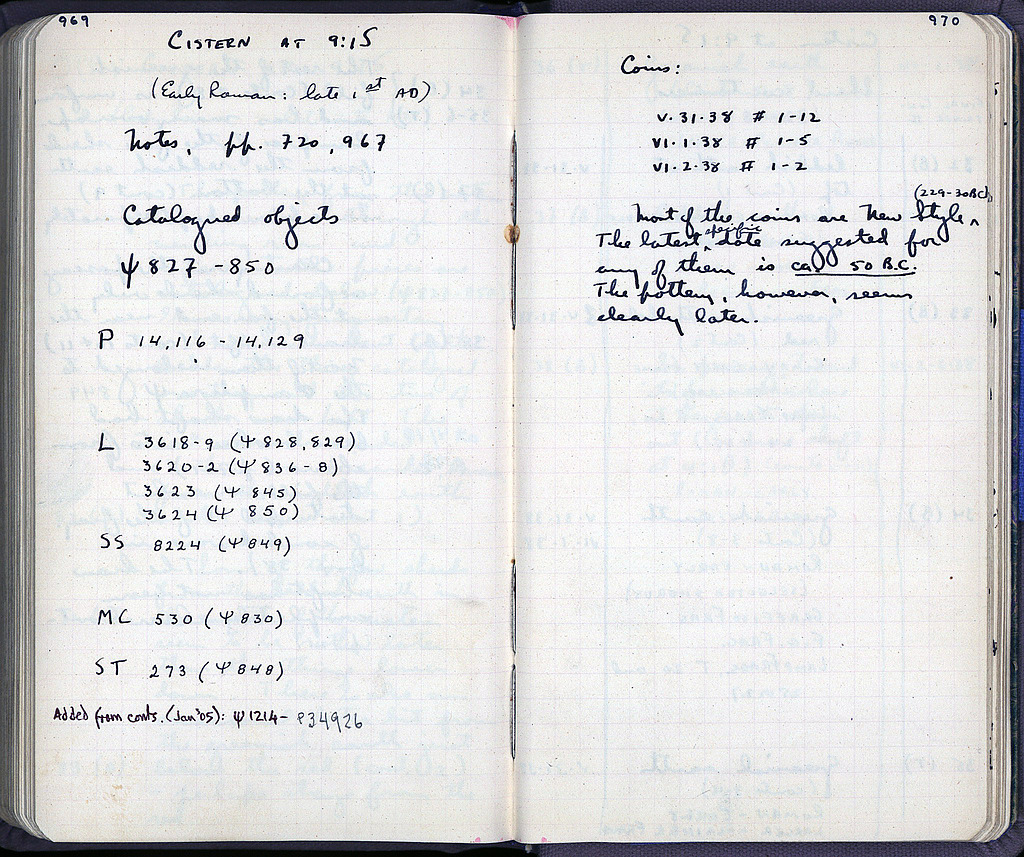 969
CISTERN AT 9:15
(Early Roman: late 1st AD)
Notes, pp. 720, 967
Catalogued objects
Ψ 827 - 850
P 14,116 - 14,129
L 3618-9 (Ψ 828, 829)
3620-2 (Ψ 836-8)
3623 (Ψ 845)
3624 (Ψ 850)
SS 8224 (Ψ849)
MC 530 (Ψ 830)
ST 273 (Ψ 848)
Added from conts. (Jan '05): Ψ 1214 - P34926
970
Coins:
V·31·38 # 1-12
VI·1·38 # 1-5
VI·2·38 # 1-2
(229-30BC)
Most of the coins are New Style.
The latest specific date suggested for
any of them is ca. 50 B.C.
The pottery, however, seems
clearly later.